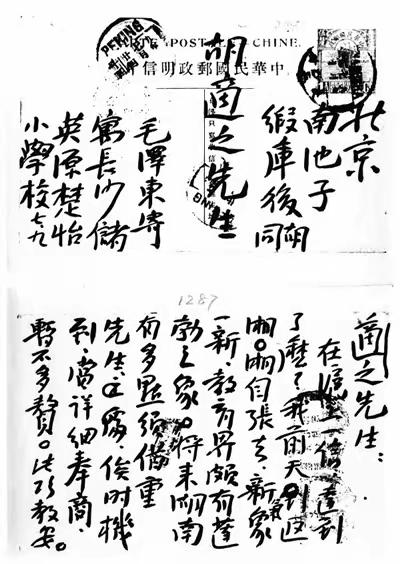 POSTALE CHINE.
中華民國郵政明信片
PEKING
北京
南池子
緞庫後胡同
胡適之先生
毛澤東寄
寓長沙儲
英源楚怡
小學校 七、九
1287
適之先生:
在滬上一信達到
了麽?我前天返
湘。湘自張去,氣象
一新,教育界頗有蓬
勃之象。將來湖南
有多點須借重
先生之處,俟時機
到,當詳細奉商,
暫不多贅。此頌教安。